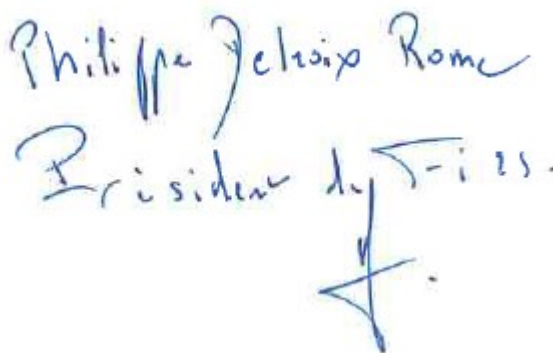 Philippe Delroix Rome
Président du Fiss.